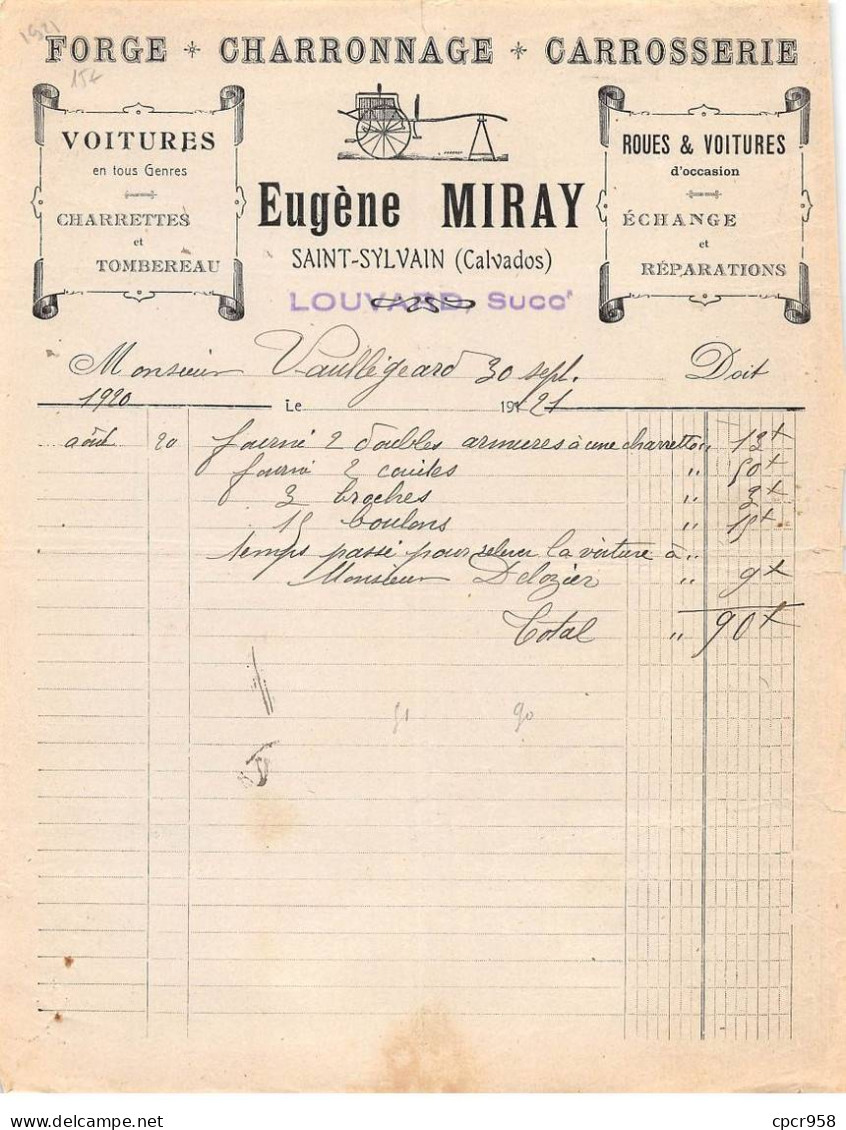 1921
15f
FORGE * CHARRONNAGE * CARROSSERIE
VOITURES
en tous Genres
CHARRETTES
et
TOMBEREAU
Eugène MIRAY
SAINT-SYLVAIN (Calvados)
LOUVARD, Succr
ROUES & VOITURES
d'occasion
ÉCHANGE
et
RÉPARATIONS
Monsieur Vaullégeard 30 sept. Doit
1920 Le 1921
août 20 fourni 2 doubles armures à une charrette " 13 x
fourni 2 " 50 x
3 broches " 3 x
15 boulons " 15 x
temps passé pour la voiture à "
Monsieur Delozier " 9 x
Total " 90 x
51 90
delcampe.net
cpcr958